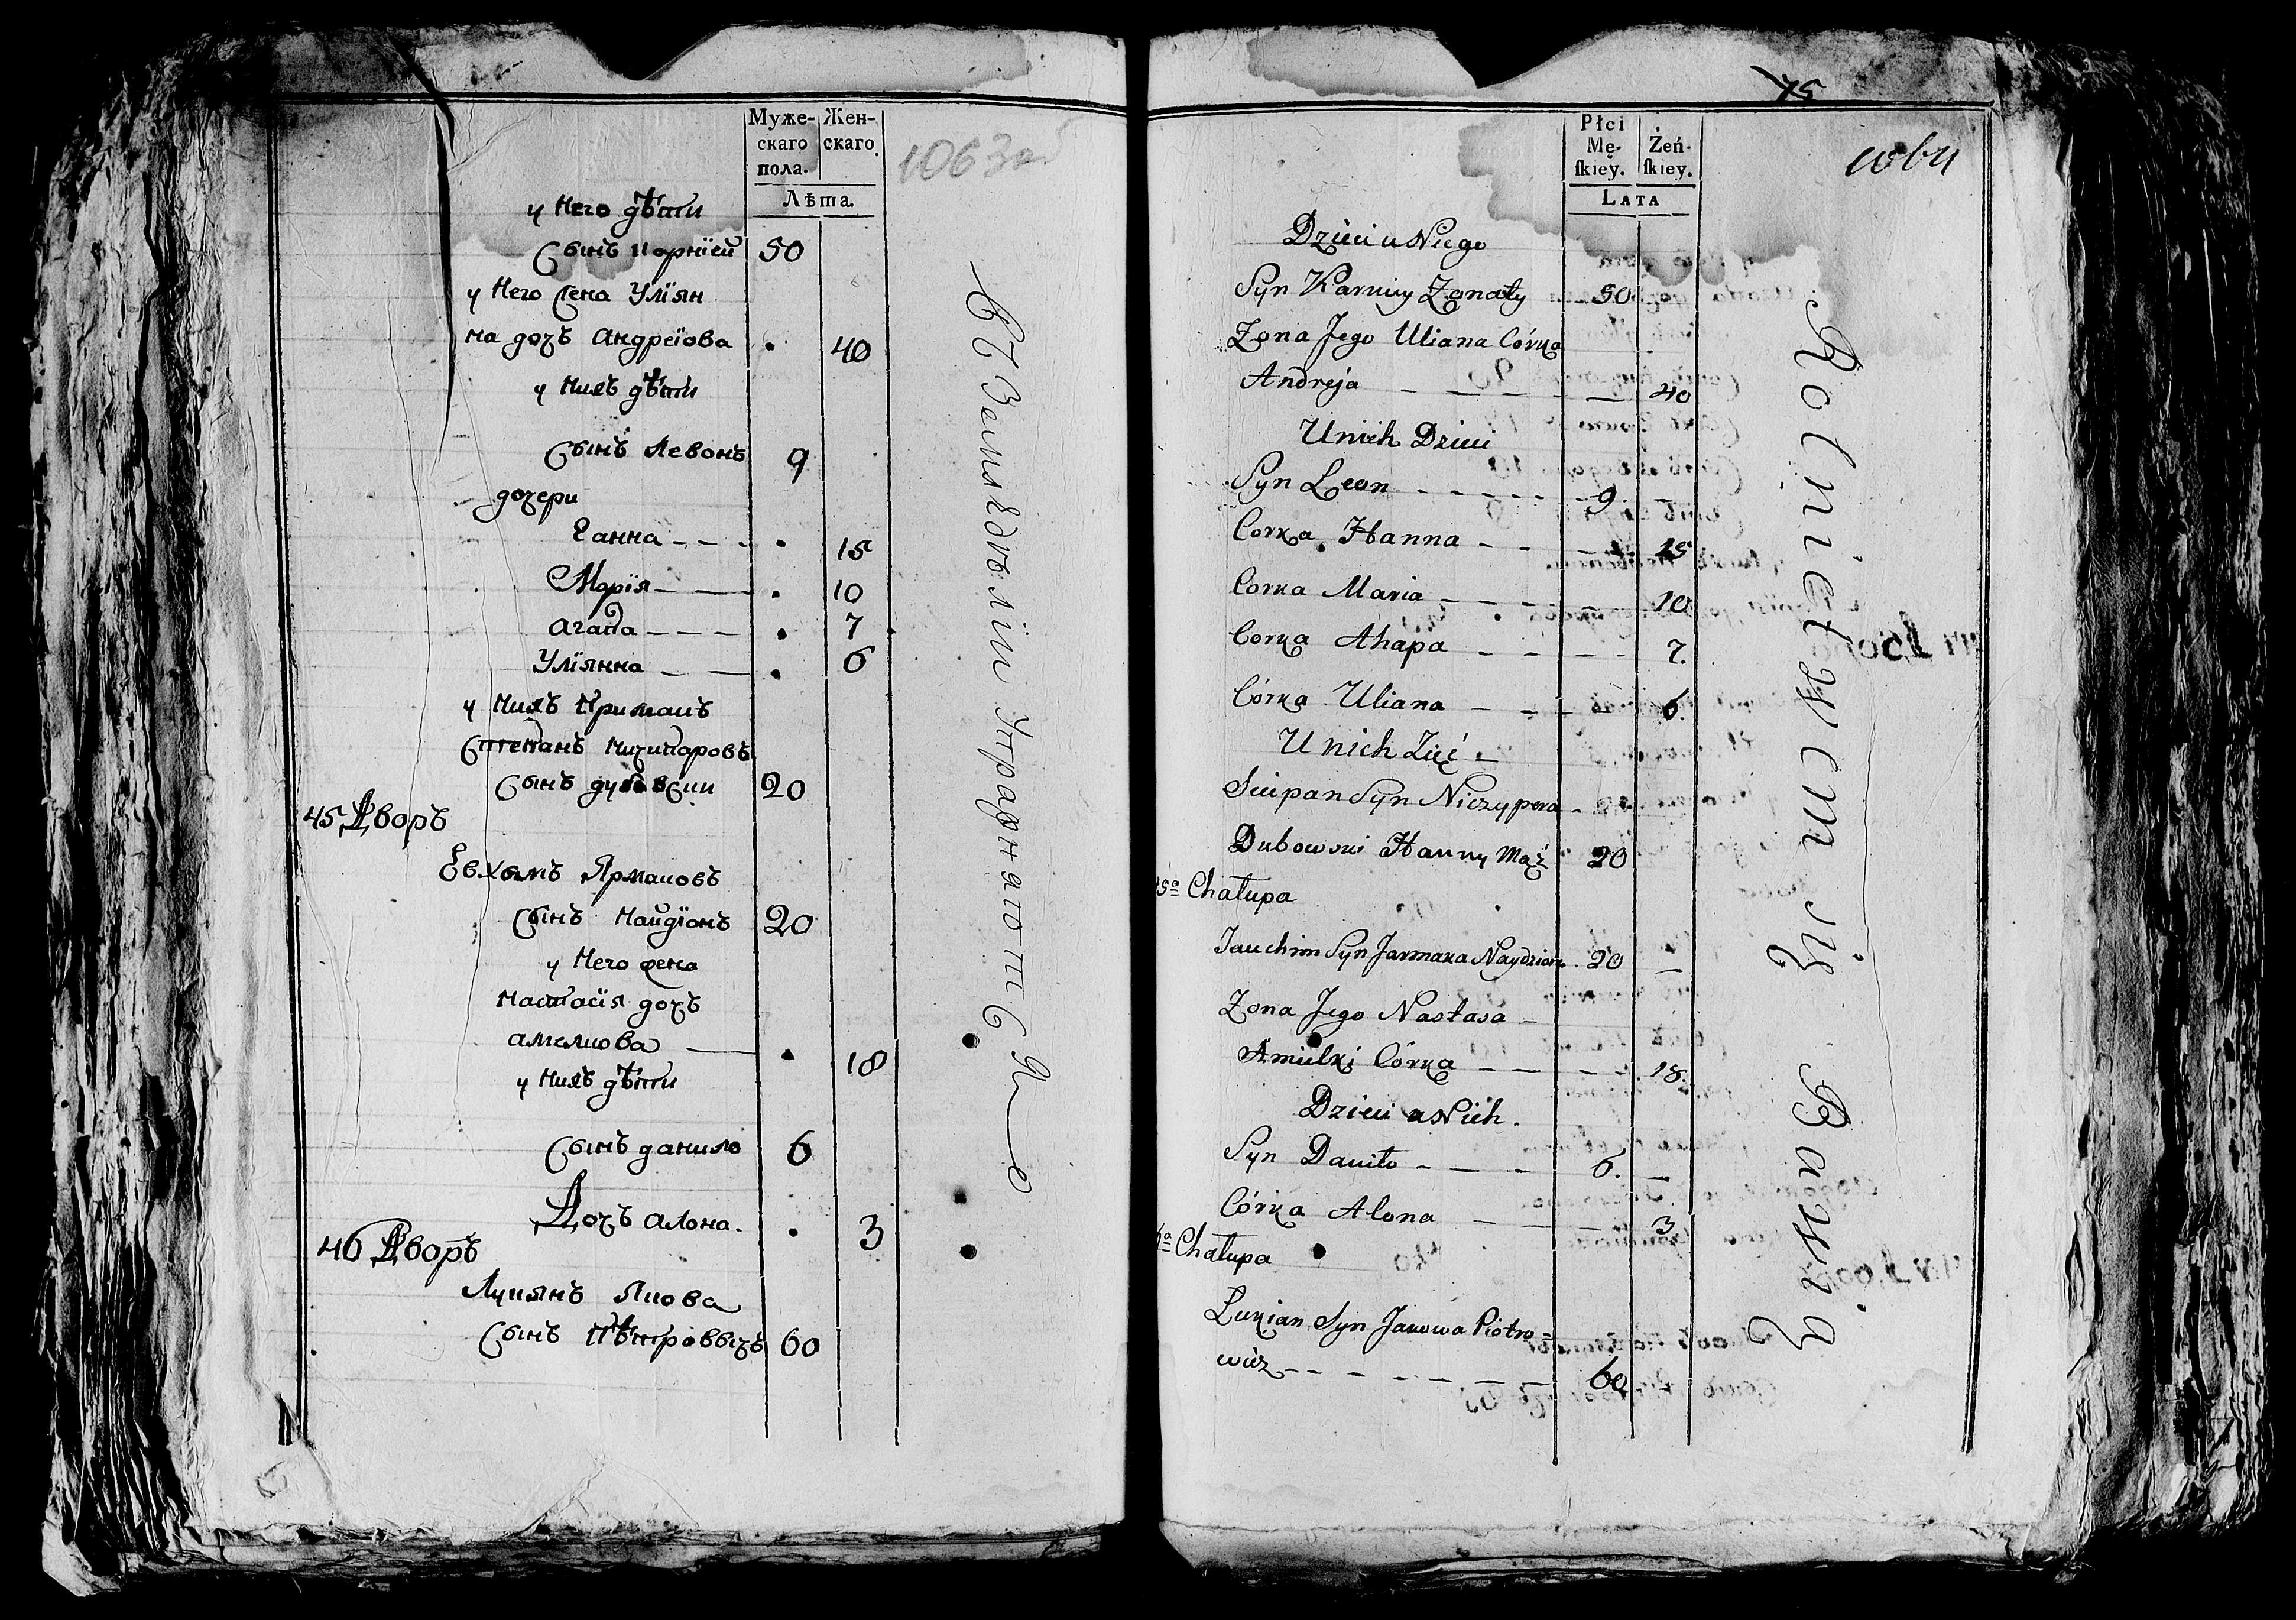 Муже-
скаго
пола.
Жен-
скаго
Лѣта.
1063об
у Него дѣти
Сынъ Карнїей 50
у Него Жена Улїян
на дочъ Андреїова 40
у нихъ дѣти
Сынъ Левонъ 9
дочери
Ганна 15
Марїя 10
агапа 7
Улїянна 6
у нихъ Примакъ
Степанъ Ничипаровъ
Сынъ дубовски 20
45 Дворъ
Евхымъ Ярмаковъ
Сынъ Найдїонъ 20
у Него жена
Настасїя дочъ
амелкова 18
у нихъ дѣти
Сынъ данило 6
Дочъ алона. 3
46 Дворъ
Лукянъ Якова
Сынъ Пѣтроввычъ 60
75
Płci
Mę-
skiey.
Żeń-
skiey.
LATA
Dzieci u Niego
Syn Karniey Żonaty 50
Żona Jego Uliana Córka
Andreja 40
U nich Dzieci
Syn Leon 9
Corka Hanna 15
Corka Maria 10
Corka Ahapa 7.
Córka Uliana 6.
U nich Zięć
Sciepan Syn Niczypera
Dubowski Hanny Mąż 20
5ª Chałupa
Jauchim Syn Jarmaka Naydzion 20
Żona Jego Nastasa
Amielki Córka 18.
Dzieci u Nich.
Syn Daniło 6.
Córka Alona 3.
6ª Chałupa
Łukian Syn Jakowa Piotro=
wicz 60
Rolnictwem się Bawią